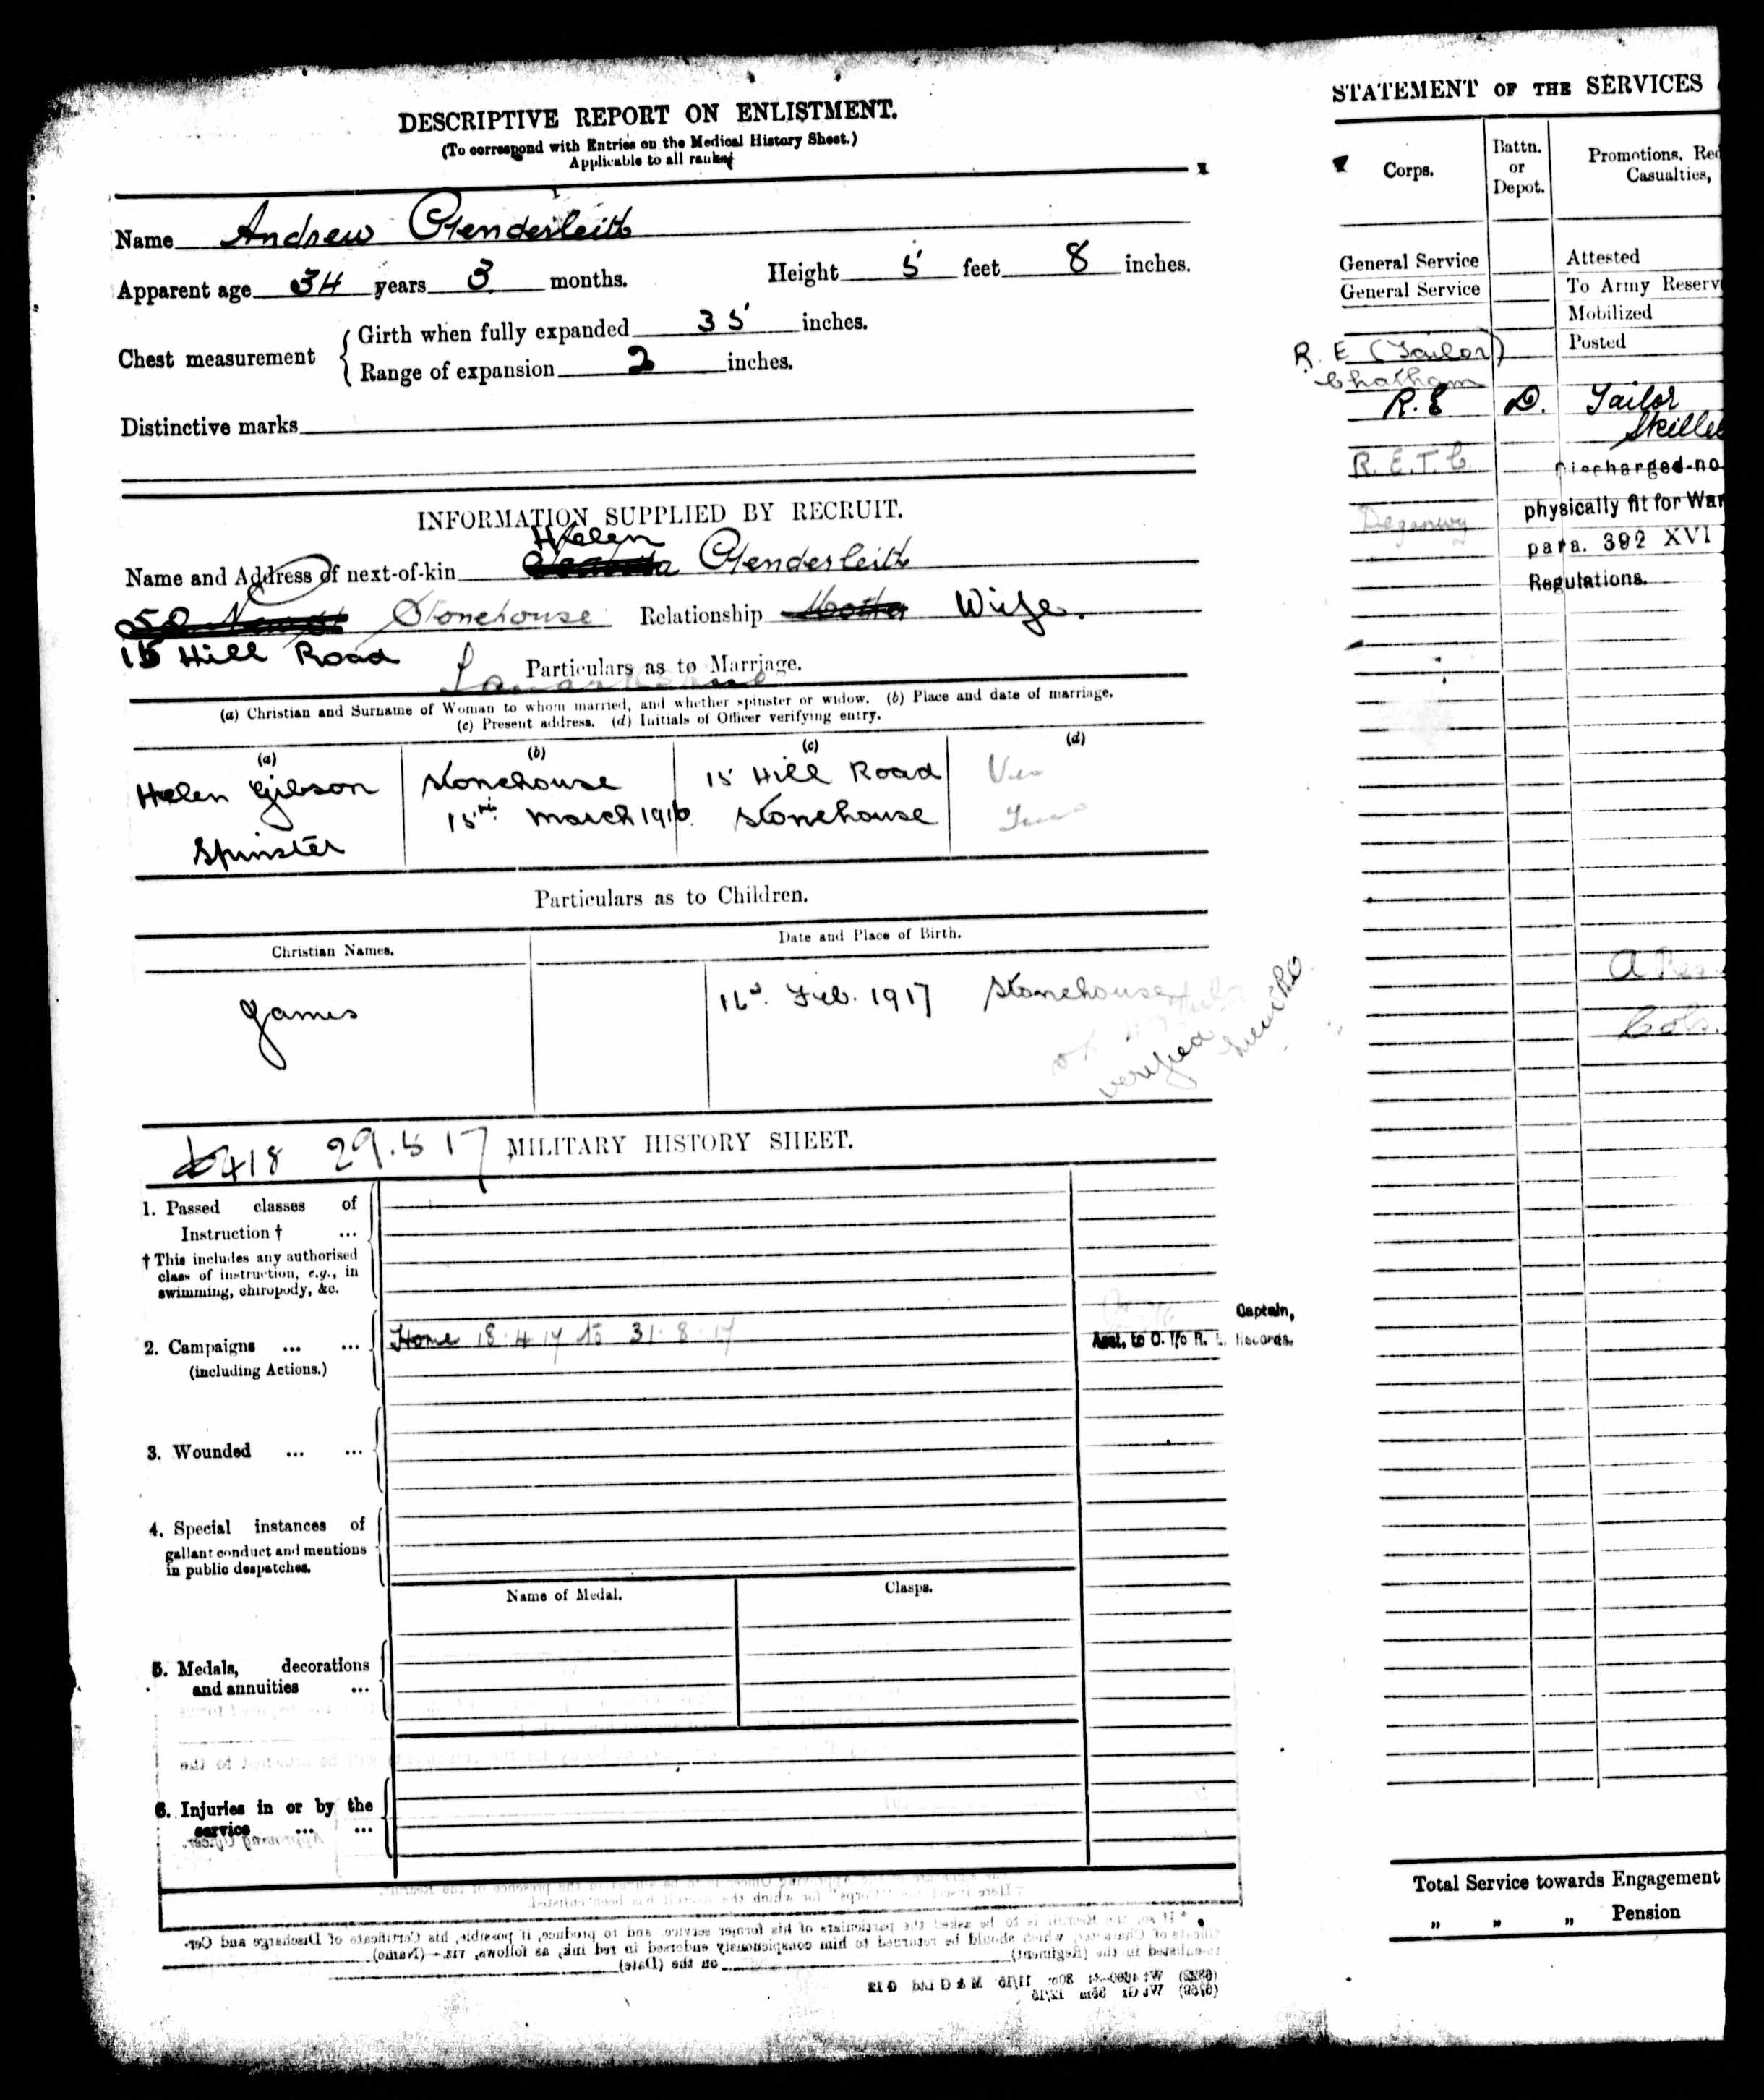 DESCRIPTIVE REPORT ON ENLISTMENT.
(To correspond with Entries on the Medical History Sheet.)
Applicable to all ranks
Name Andrew Glenderleith
Apparent age 34 years 3 months. Height 5 feet 8 inches.
Chest measurement
Girth when fully expanded 35 inches.
Range of expansion 2 inches.
Distinctive marks
INFORMATION SUPPLIED BY RECRUIT.
Helen
Name and Address of next-of-kin Glenderleith
Stonehouse Relationship Mother Wife.
15 Hill Road
Lanarkshire
Particulars as to Marriage.
(a) Christian and Surname of Woman to whom married, and whether spinster or widow. (b) Place and date of marriage.
(c) Present address. (d) Initials of Officer verifying entry.
(a) (b) (c) (d)
Helen Gibson Stonehouse 15 Hill Road
Spinster 15th March 1916. Stonehouse
Particulars as to Children.
Christian Names. Date and Place of Birth.
James Feb. 1917 Stonehouse
verified
418 29.5 17 MILITARY HISTORY SHEET.
1. Passed classes of
Instruction † ...
† This includes any authorised
class of instruction, e.g., in
swimming, chiropody, &c.
2. Campaigns ... ... Home 18.4.17 to 31.8.17
(including Actions.)
Captain,
Asst. to O. i/o R. E. Records.
3. Wounded ... ...
4. Special instances of
gallant conduct and mentions
in public despatches.
Name of Medal. Clasps.
5. Medals, decorations
and annuities ...
6. Injuries in or by the
service ... ...
STATEMENT OF THE SERVICES
Corps. Battn. or Depot. Promotions, Red
Casualties,
General Service Attested
General Service To Army Reserv
Mobilized
Posted
R. E (Tailor)
Chatham
R.E D. Tailor
Skilled
R. E. T. C Discharged-no
Deganwy physically fit for War
para. 392 XVI
Regulations.
Total Service towards Engagement
" " " Pension